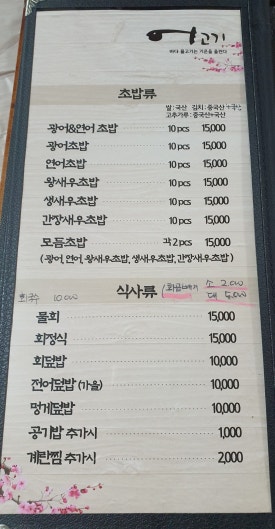 어고기
바다 물고기는 기운을 돋운다
초밥류
쌀 : 국산 김치 : 중국산+국산
고추가루 : 중국산+국산
광어&연어 초밥 10 pcs 15,000
광어초밥 10 pcs 15,000
연어초밥 10 pcs 15,000
왕새우초밥 10 pcs 15,000
생새우초밥 10 pcs 15,000
간장새우초밥 10 pcs 15,000
모듬초밥 각 2 pcs 15,000
( 광어, 연어, 왕새우초밥, 생새우초밥, 간장새우초밥 )
회국수 10,000 식사류 소 2,000
대 5,000
물회 15,000
회정식 15,000
회덮밥 10,000
전어덮밥 (가을) 10,000
멍게덮밥 10,000
공기밥 추가시 1,000
계란찜 추가시 2,000